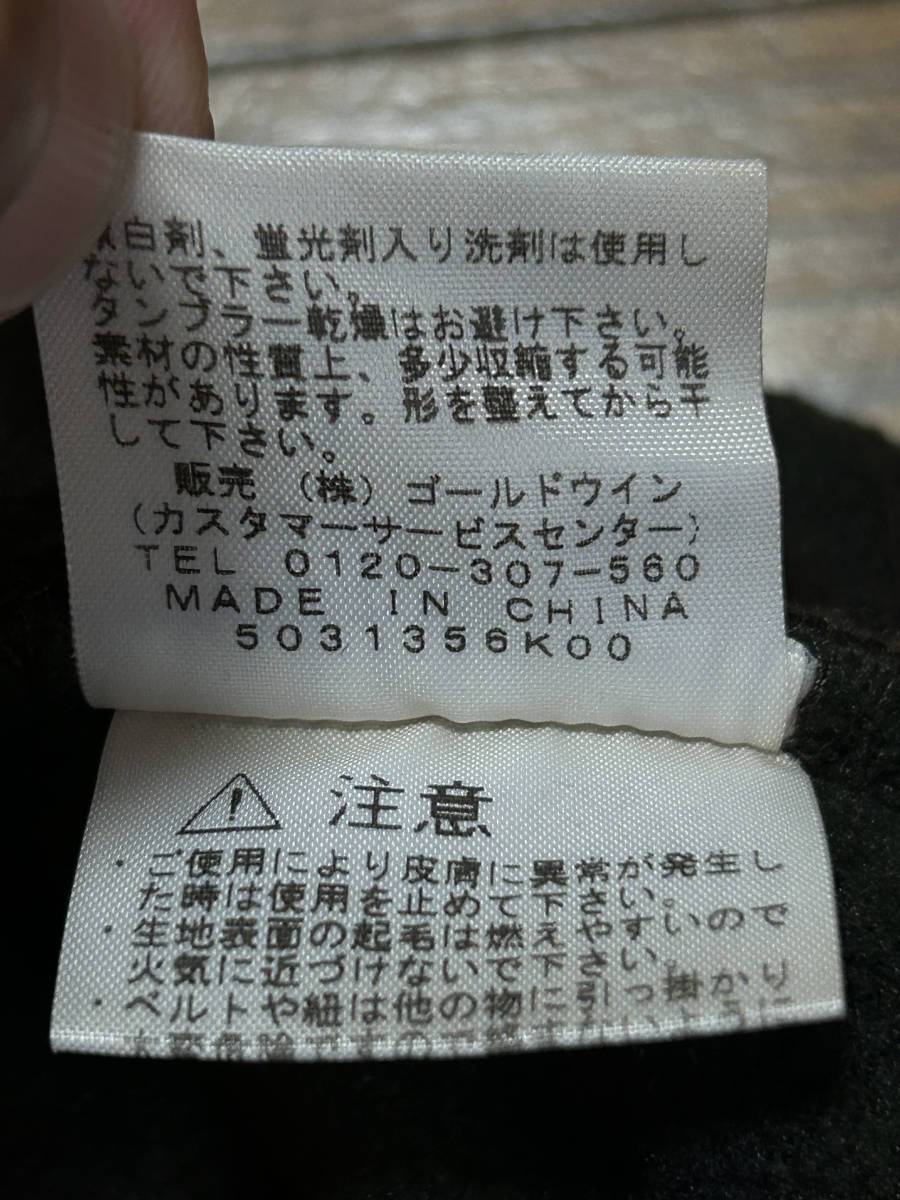 白剤、蛍光剤入り洗剤は使用し
ないで下さい。
タンブラー乾燥はお避け下さい。
素材の性質上、多少収縮する可能
性があります。形を整えてから干
して下さい。
販売 (株) ゴールドウイン
(カスタマーサービスセンター)
TEL 0120-307-560
MADE IN CHINA
5031356K00
注意
・ご使用により皮膚に異常が発生し
た時は使用を止めて下さい。
・生地表面の起毛は燃えやすいので
火気に近づけないで下さい。
・ベルトや紐は他の物に引っ掛かり